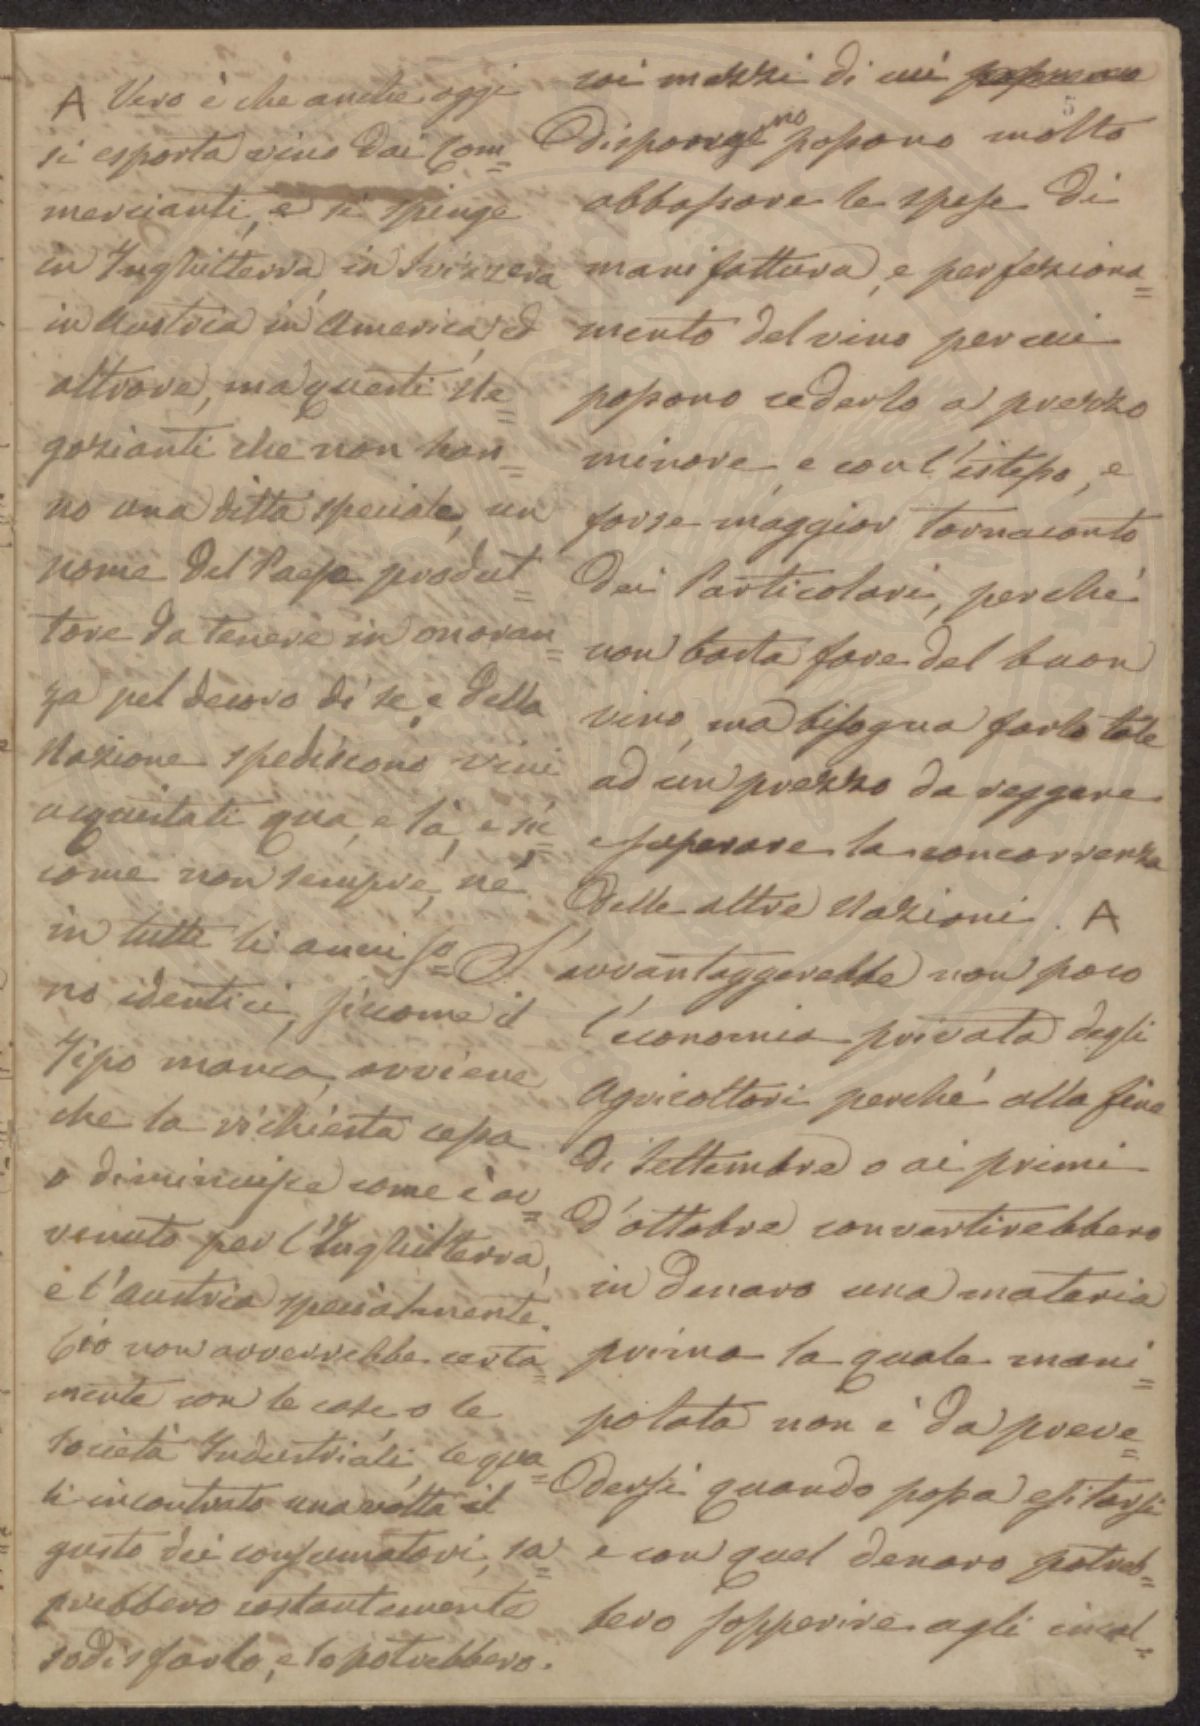 A Vero è che anche oggi
si esporta vino dai Com=
mercianti, e si spinge
in Inghilterra, in Svizzera
in Austria in America, ed
altrove, ma questi Ne=
gozianti che non han=
no una ditta speciale, un
nome del Paese produt=
tore da tenere in onoran=
za pel decoro di se, e della
Nazione spediscono vini
acquistati qua, e là, e sic=
come non sempre, nè
in tutti li anni so=
no identici, siccome il
Tipo manca, avviene
che la richiesta cessa
o diminuisce come è av=
venuto per l'Inghilterra,
e l'Austria specialmente.
Ciò non avverrebbe certa=
mente con le case, o le
Società Industriali, le qua=
li incontrato una volta il
gusto dei consumatori, sa=
prebbero costantemente
sodisfarlo, e lo potrebbero.
coi mezzi di cui
5
dispongono possono molto
abbassare le spese di
manifattura, e perfeziona=
mento del vino per cui
possono cederlo a prezzo
minore, e con l'istesso, e
forse maggior tornaconto
dei Particolari, perchè
non basta fare del buon
vino, ma bisogna farlo tale
ad un prezzo da reggere
e superare la concorrenza
delle altre Nazioni. A
S'avvantaggerebbe non poco
l'economia privata degli
Agricoltori perchè alla fine
di Settembre o ai primi
d'ottobre convertirebbero
in denaro una materia
prima la quale mani=
polata non è da preve=
dersi quando possa esitarsi
e con quel denaro potreb=
bero sopperire agli incal=